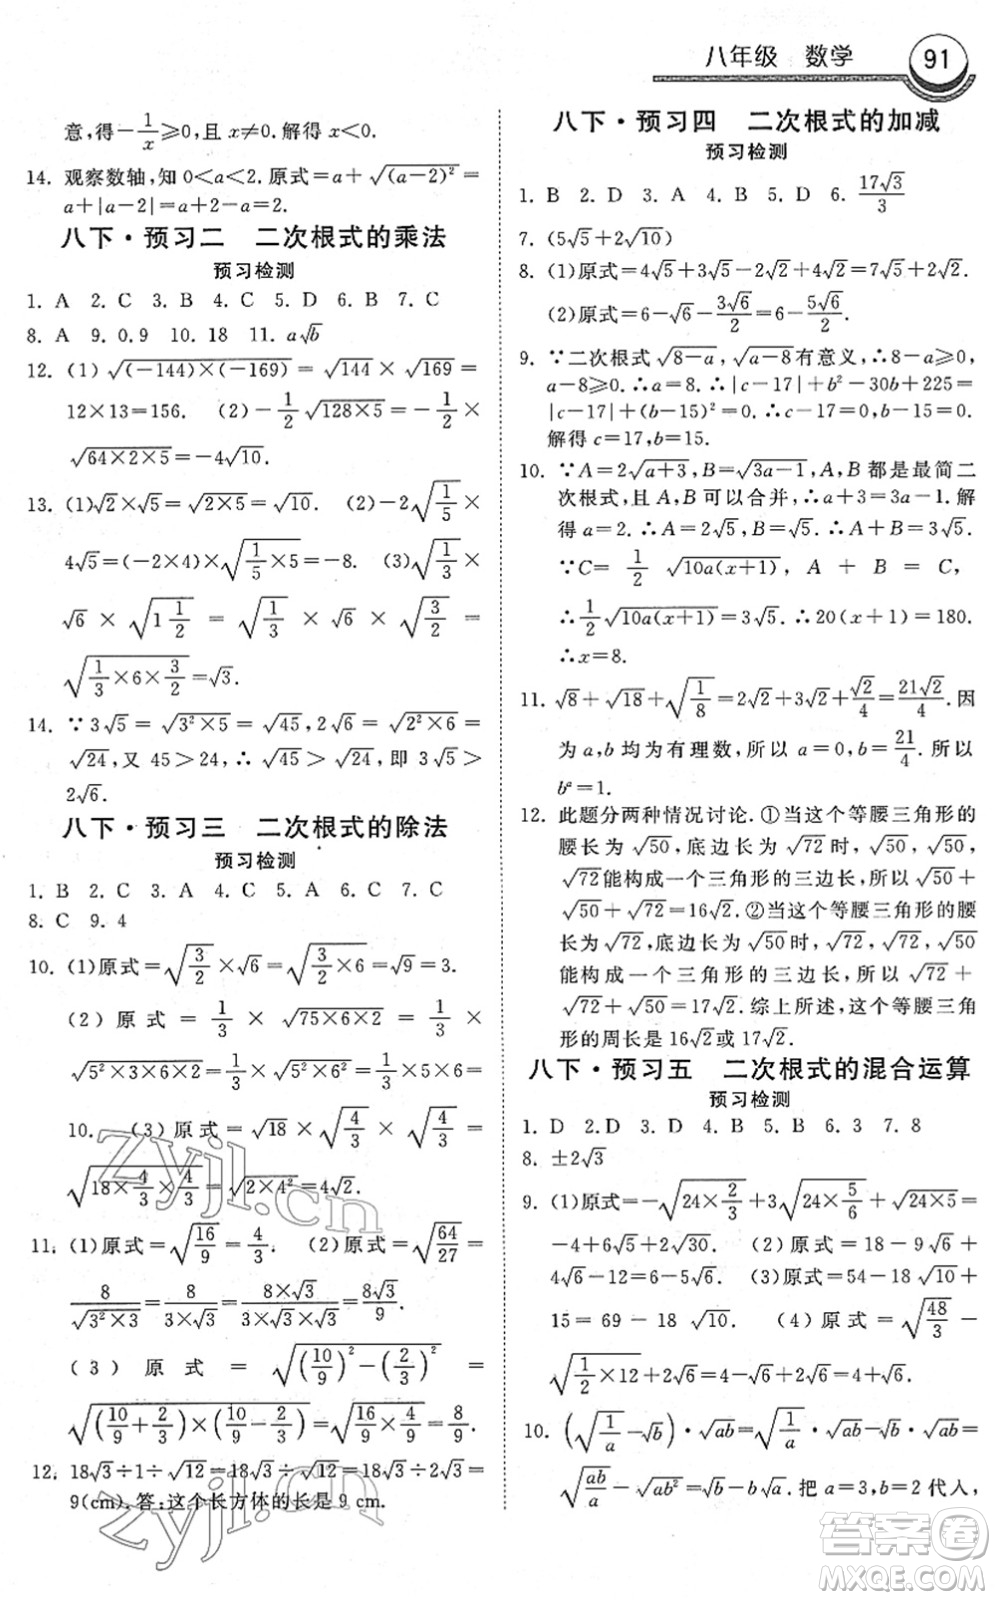 八年级 数学 91
意,得-1/x≥0,且 x≠0.解得 x<0.
14. 观察数轴,知 0<a<2.原式=a+√(a-2)²=
a+|a-2|=a+2-a=2.
八下·预习二 二次根式的乘法
预习检测
1. A 2. C 3. B 4. C 5. D 6. B 7. C
8. A 9. 0.9 10. 18 11. a√b
12. (1) √(-144)×(-169)=√144×√169=
12×13=156. (2)-1/2√128×5=-1/2×
√64×2×5=-4√10.
13. (1)√2×√5=√2×5=√10. (2)-2√1/5×
4√5=(-2×4)×√1/5×5=-8. (3)√1/3×
√6×√1 1/2=√1/3×√6×√3/2=
√1/3×6×3/2=√3.
14. ∵3√5=√3²×5=√45,2√6=√2²×6=
√24,又 45>24,∴√45>√24,即 3√5>
2√6.
八下·预习三 二次根式的除法
预习检测
1. B 2. C 3. A 4. C 5. C 6. C 7. C
8. C 9. 4
10. (1)原式=√3/2×√6=√3/2×6=√9=3.
(2)原式=1/3×√75×6×2=1/3×
√5²×3×6×2=1/3×√5²×6²=1/3×5×6=
10. (3)原式=√18×√4/3×√4/3=
√18×4/3×4/3=√2×4²=4√2.
11. (1)原式=√16/9=4/3. (2)原式=√64/27=
8/√3²×3=8/3×√3=8×√3/3×√3×√3=8√3/9.
(3)原式=√(10/9)²-(2/3)²=
√(10/9+2/3)×(10/9-2/3)=√16/9×4/9=8/9.
12. 18√3÷1÷√12=18√3÷√12=18√3÷2√3=
9(cm).答:这个长方体的长是 9 cm.
八下·预习四 二次根式的加减
预习检测
1. B 2. D 3. A 4. B 5. D 6. 17√3/3
7. (5√5+2√10)
8. (1)原式=4√5+3√5-2√2+4√2=7√5+2√2.
(2)原式=6-√6-3√6/2=6-5√6/2.
9. ∵二次根式√8-a,√a-8有意义,∴8-a≥0,
a-8≥0.∴a=8.∴|c-17|+b²-30b+225=
|c-17|+(b-15)²=0.∴c-17=0,b-15=0.
解得 c=17,b=15.
10. ∵A=2√a+3,B=√3a-1,A,B 都是最简二
次根式,且 A,B 可以合并,∴a+3=3a-1.解
得 a=2.∴A=2√5,B=√5.∴A+B=3√5.
∵C=1/2√10a(x+1),A+B=C,
∴1/2√10a(x+1)=3√5.∴20(x+1)=180.
∴x=8.
11. √8+√18+√1/8=2√2+3√2+√2/4=21√2/4.因
为 a,b 均为有理数,所以 a=0,b=21/4.所以
bᵃ=1.
12. 此题分两种情况讨论.①当这个等腰三角形的
腰长为√50,底边长为√72时,√50,√50,
√72能构成一个三角形的三边长,∴√50+
√50+√72=16√2.②当这个等腰三角形的腰
长为√72,底边长为√50时,√72,√72,√50
能构成一个三角形的三边长,∴√72+
√72+√50=17√2.综上所述,这个等腰三角
形的周长是 16√2或 17√2.
八下·预习五 二次根式的混合运算
预习检测
1. D 2.D 3. D 4. B 5. B 6. 3 7. 8
8. ±2√3
9. (1)原式=-√24×2/3+3√24×5/6+√24×5=
-4+6√5+2√30. (2)原式=18-9-√5+
4√5-12=6√5-5. (3)原式=54-18√10+
15=69-18√10. (4)原式=√48/3-
√1/2×12+2√6=4-√6+2√6=4+√6.
10. (√1/a-√b)·√ab=√1/a·√ab-√b·√ab
=√ab/a-√ab²=√b-b√a.把 a,b 代入,
zyjl.cn
zyjl.cn
答案圈
MXQE.COM